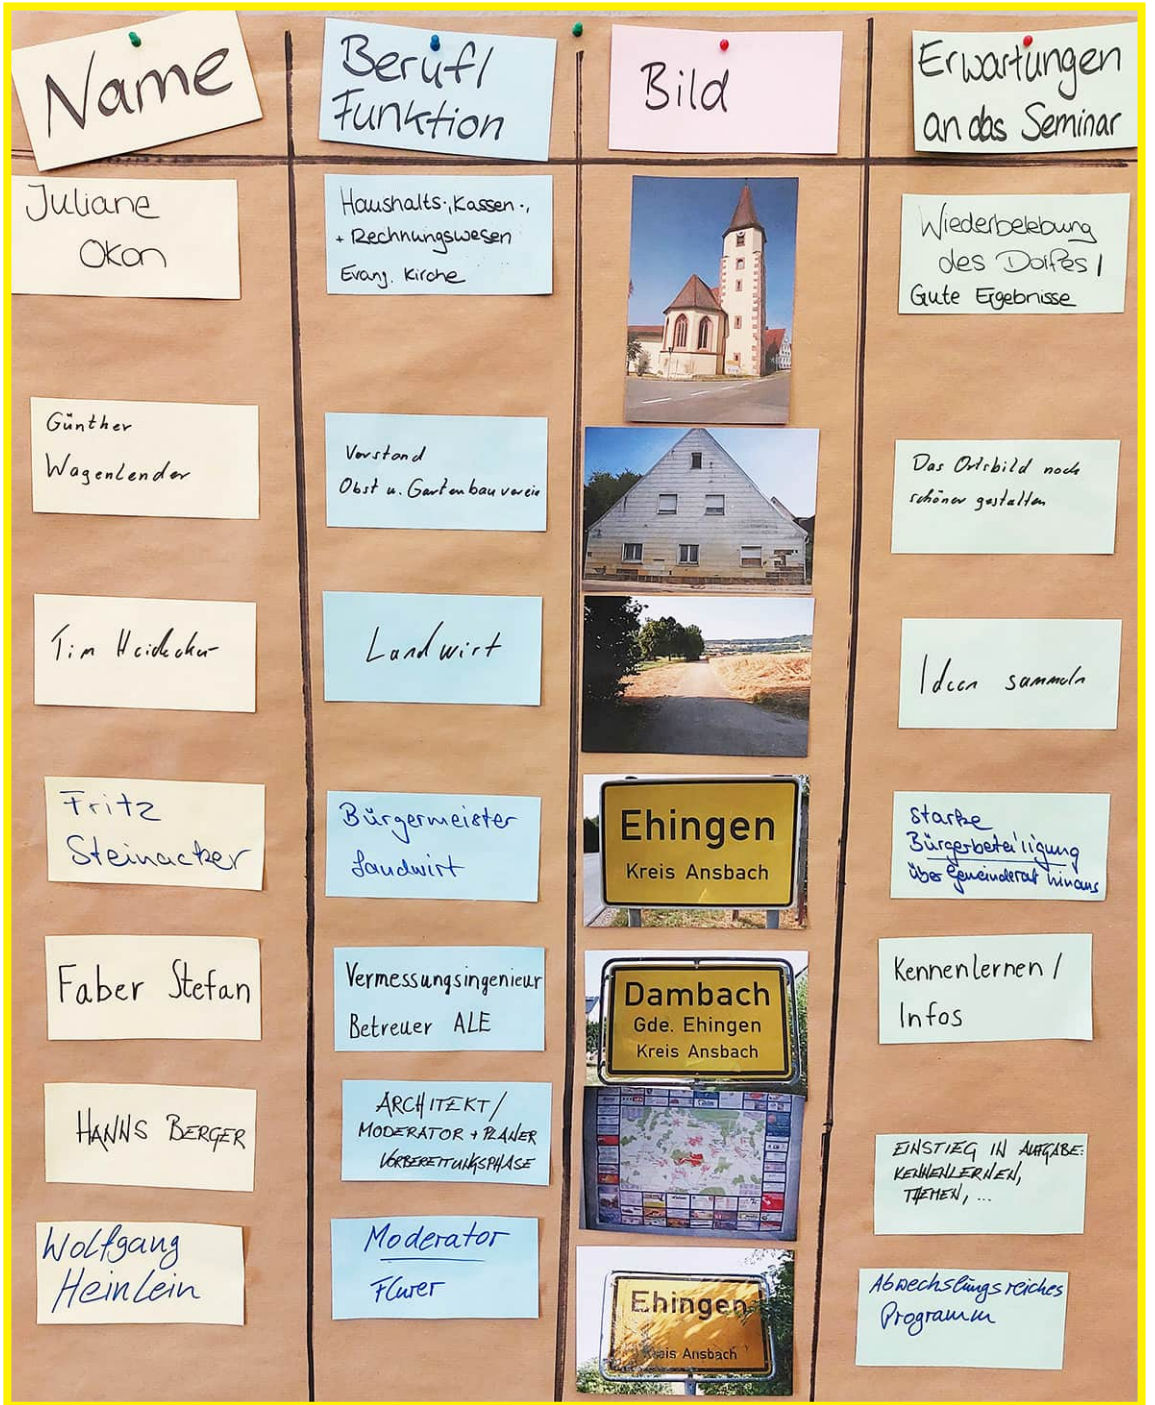 Name
Beruf/
Funktion
Bild
Erwartungen
an das Seminar
Juliane
Okon
Haushalts-, Kassen-,
+ Rechnungswesen
Evang. Kirche
Wiederbelebung
des Dorfes /
Gute Ergebnisse
Günther
Wagenlender
Vorstand
Obst u. Gartenbauverein
Das Ortsbild noch
schöner gestalten
Tim Heidecker
Landwirt
Ideen sammeln
Fritz
Steinacker
Bürgermeister
Landwirt
Ehingen
Kreis Ansbach
starke
Bürgerbeteiligung
über Gemeinderat hinaus
Faber Stefan
Vermessungsingenieur
Betreuer ALE
Dambach
Gde. Ehingen
Kreis Ansbach
Kennenlernen /
Infos
HANNS BERGER
ARCHITEKT/
MODERATOR + PLANER
VORBEREITUNGSPHASE
EINSTIEG IN AUFGABE:
KENNENLERNEN,
THEMEN, ...
Wolfgang
Heinlein
Moderator
Flurer
Ehingen
Kreis Ansbach
Abwechslungsreiches
Programm